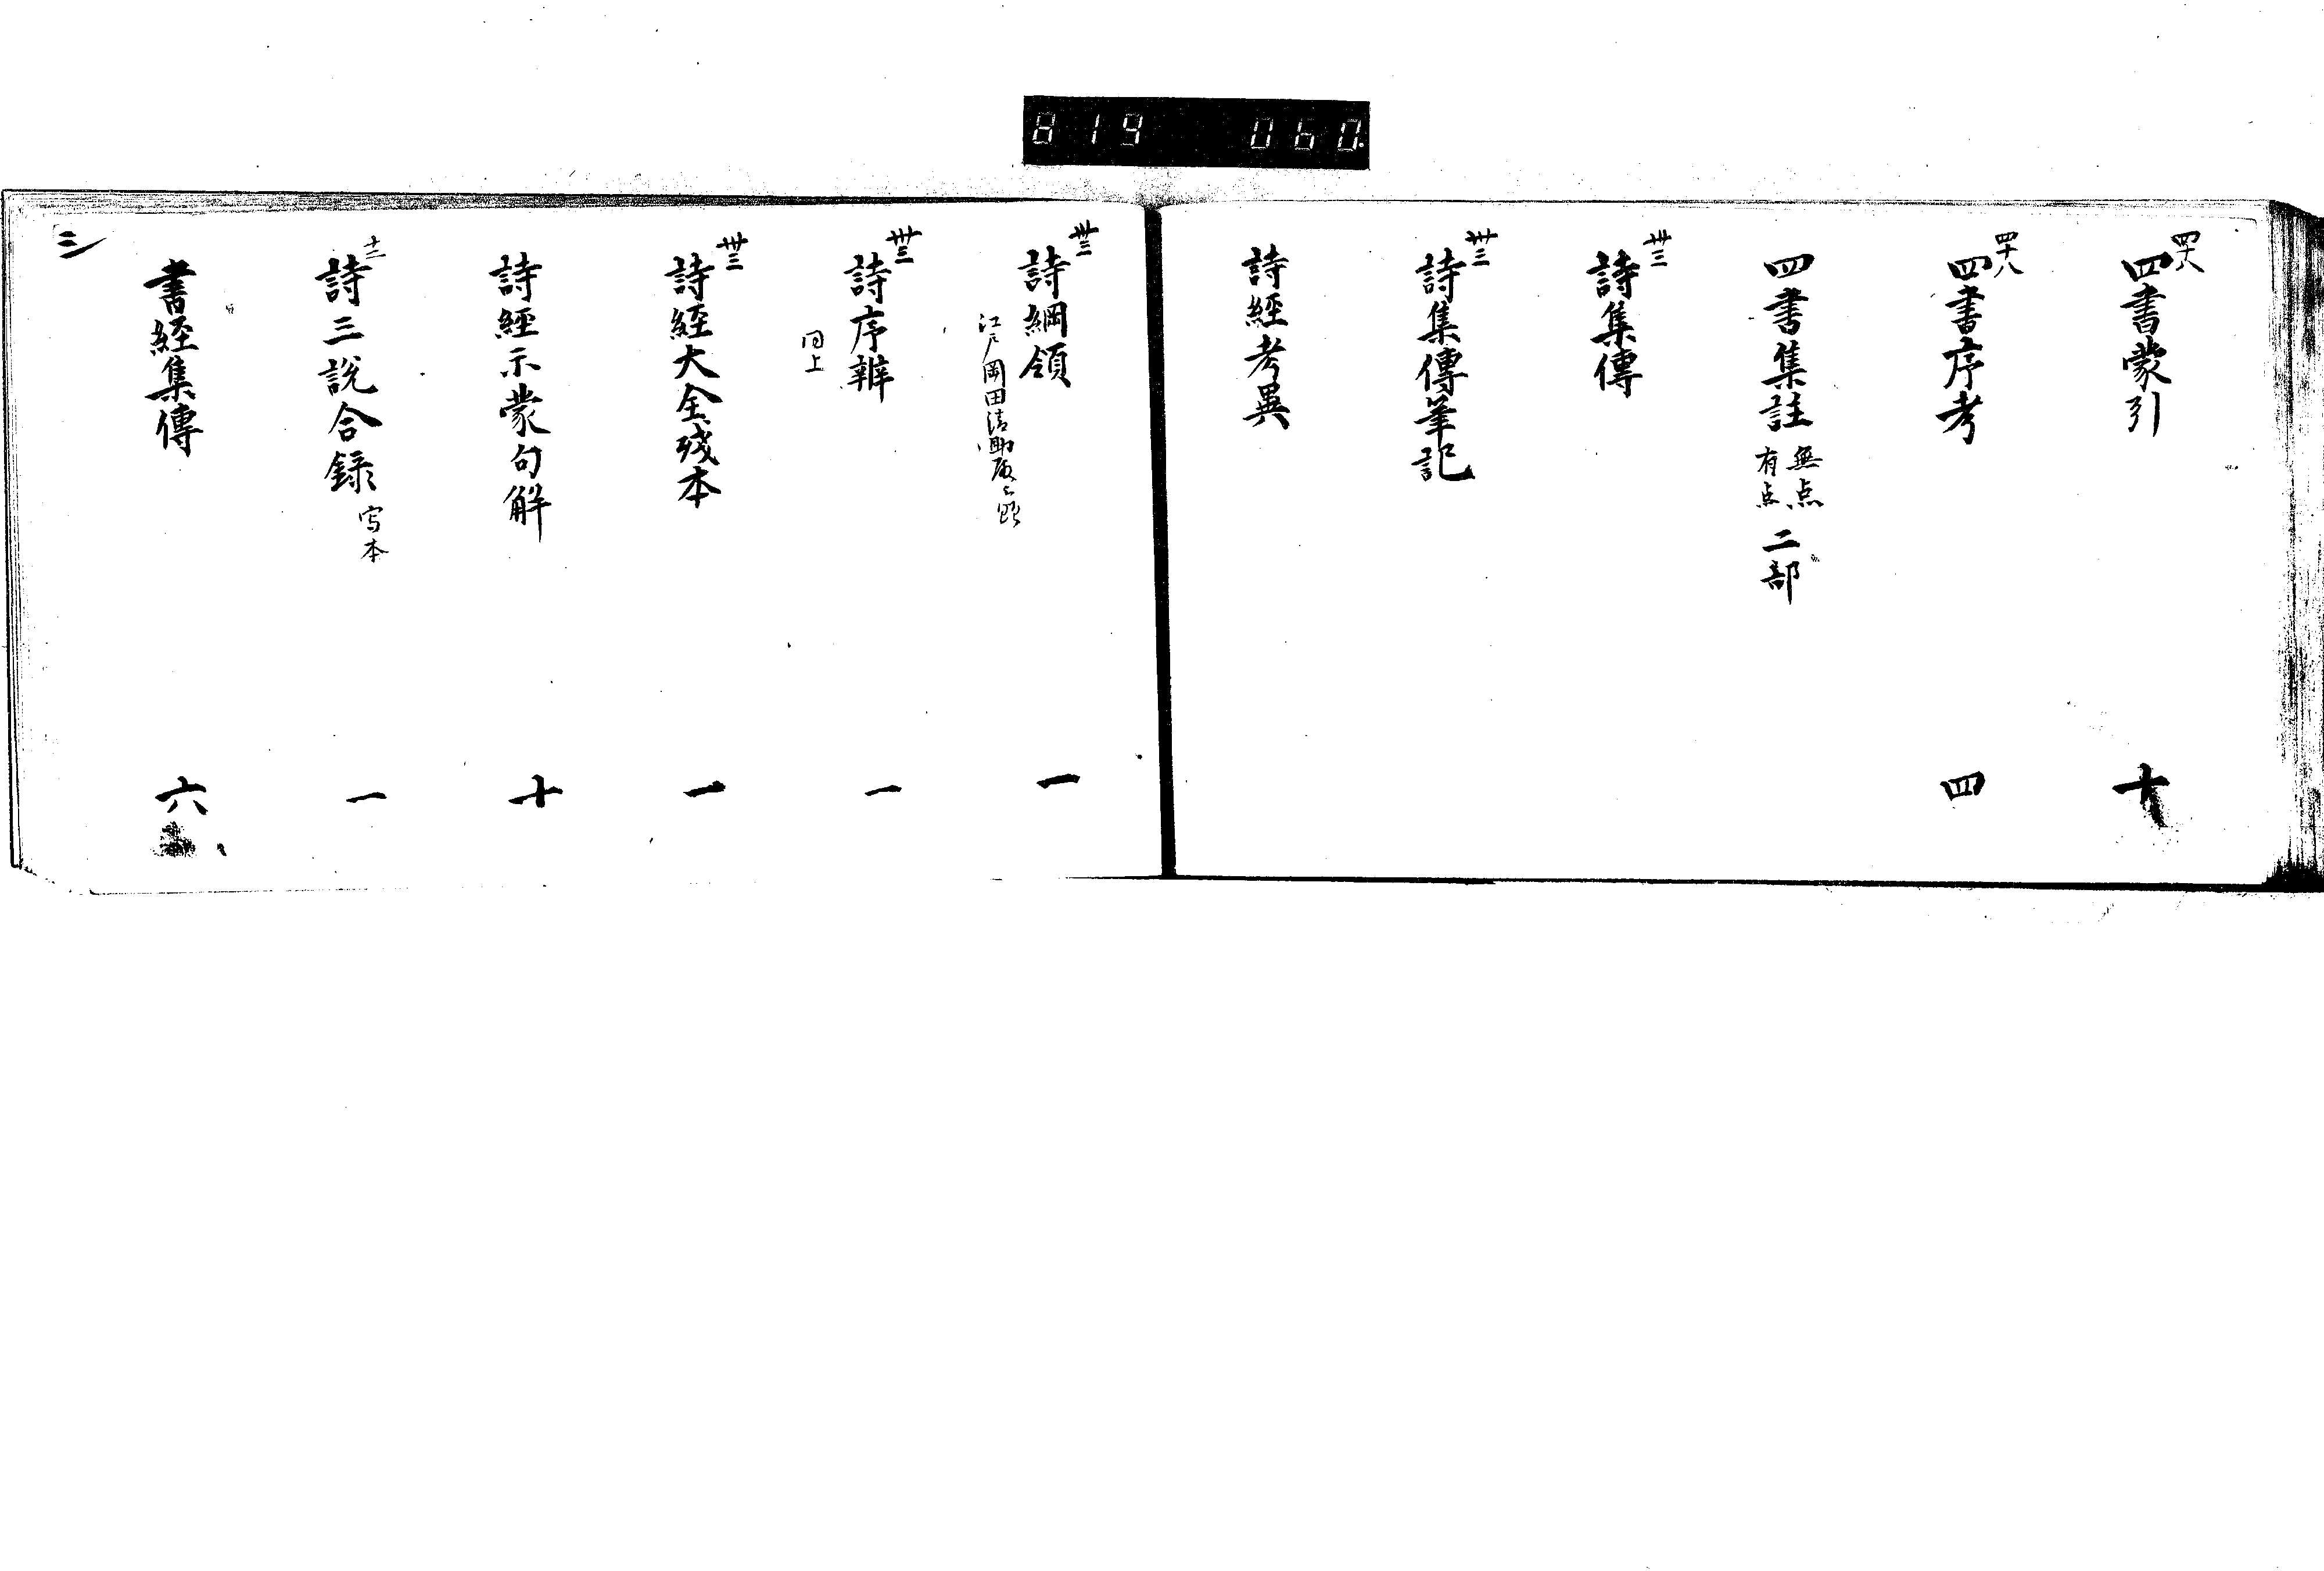 819 060.
四十八
四書蒙引 十
四十八
四書序考 四
四書集註 無点 有点 二部
卅三
詩集傳
卅三
詩集傳筆記
詩經考異
卅三
詩綱領 一
江戸岡田清助
卅三
詩序辨 一
同上
卅三
詩經大全残本 一
詩經示蒙句解 十
十二
詩三説合録 写本 一
書経集傳 六
三